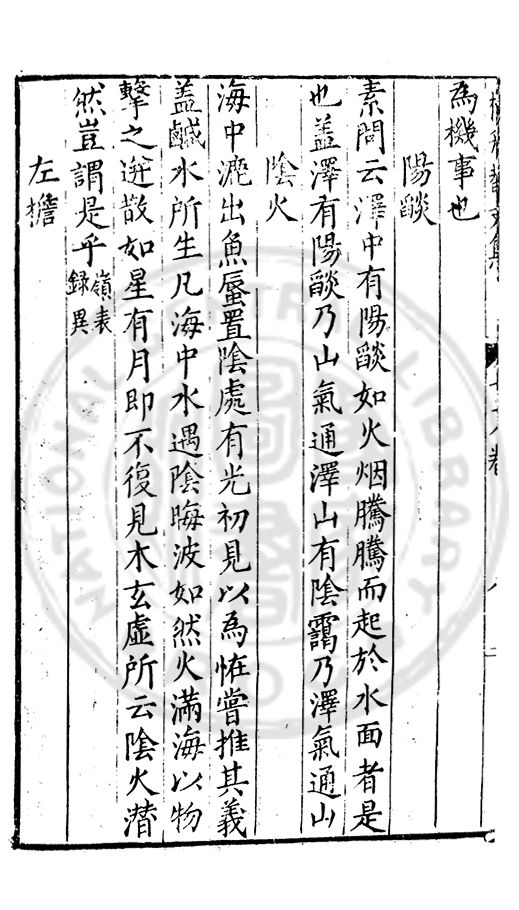 為機事也
陽燄
素問云澤中有陽燄如火烟騰騰而起於水面者是
也蓋澤有陽燄乃山氣通澤山有陰靄乃澤氣通山
陰火
海中漉出魚蜃置陰處有光初見以為恠嘗推其義
盖鹹水所生凡海中水遇陰晦波如然火滿海以物
擊之迸散如星有月即不復見木玄虛所云陰火潛
然豈謂是乎嶺表
録異
左擔
NATIONAL CENTRAL LIBRARY